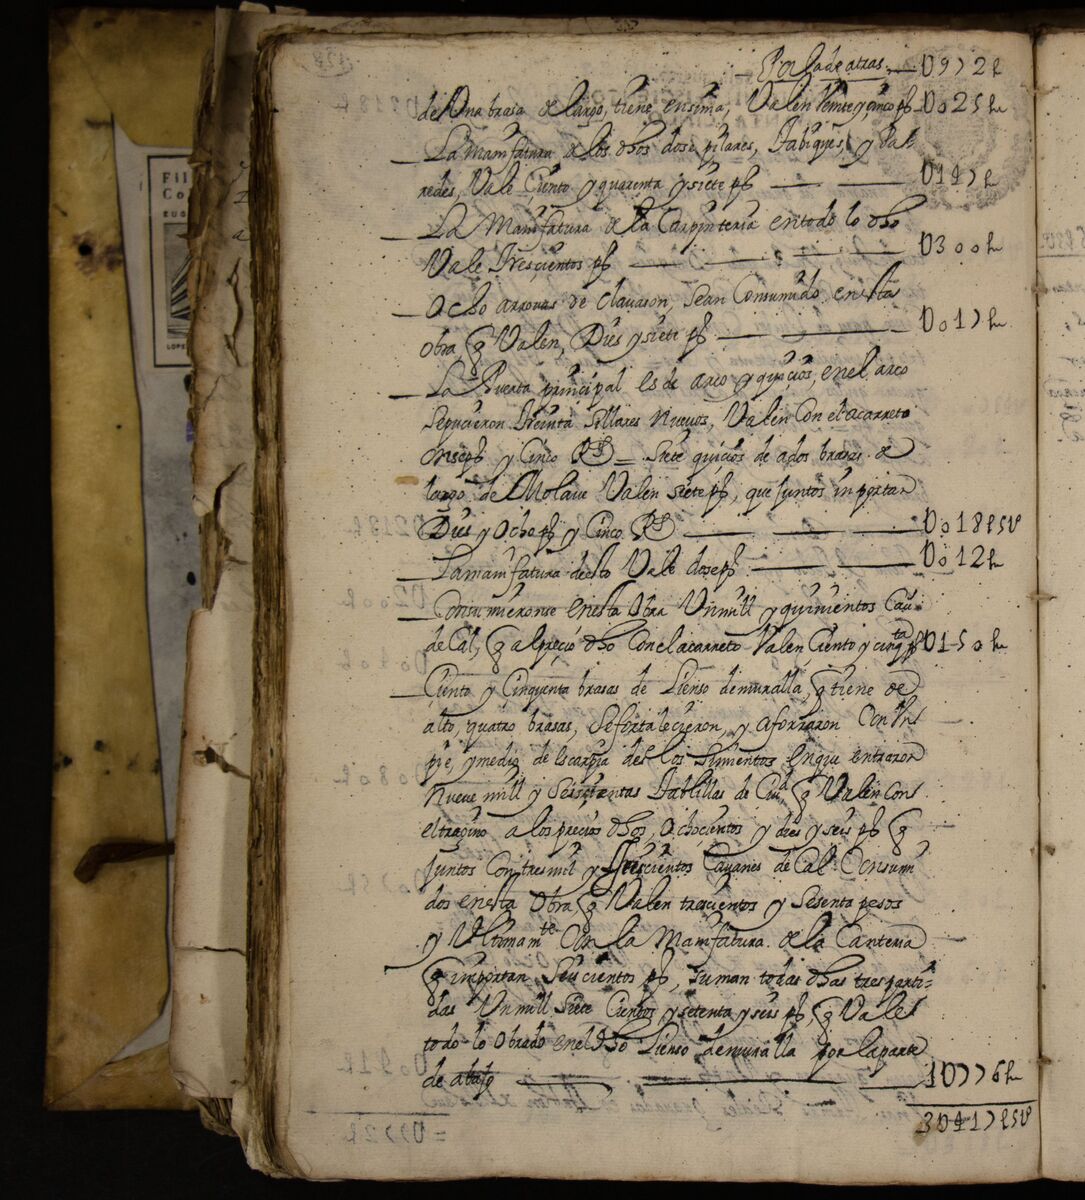 Por la de atras — U972 p
de Una brasa de largo, tiene ensima, Valen Veinte y cinco ps Uo25 p
La Manifatura de los dhos dose pilares, Tabiques, y Pa
redes, Vale Ciento y quarenta y siete ps — U147 p
La Manifatura de la Carpinteria en todo lo dho
Vale Trescientos ps — U3oo p
Ocho arrouas de clauason, sean Consumido en esta
obra, q Valen, Dies y siete ps — Uo17 p
La Puerta principal es de arco y quicios, en el arco
sepucieron Treinta sillares nueuos, Valen Con el acarreto
onse ps y Cinco Rs = Siete quicios de a dos brasas de
largo de Molaue Valen siete ps, que juntos inportan
Dies y Ocho ps y Cinco Rs — Uo18 p 5 U
La manifatura desto Vale dose ps — Uo12 p
Consumieronse en esta Obra Un mill y quinientos Cau
de Cal, q al precio dho Con el acarreto Valen Ciento y cinqta ps U15o p
Ciento y Cinquenta brasas de Lienso de muralla, q tiene de
alto, quatro brasas, se fortalecieron, y aforraron Con Un
pie, y medio de Escarpia desde los Simientos en que entraron
Nueue mill y Seiscientas Tablillas de Ciud q Valen con
el tragino a los precios dhos, Ochocientos y dies y seis ps q
juntos Con tres mil y Trescientos Cauanes de Cal Consumi
dos en esta Obra q Valen trescientos y Sesenta pesos
y Ultimamte Con la Manifatura de la Canteria
q importan Seiscientos ps, suman todas dhas tres parti=
das Un mill Siete Cientos y setenta y seis ps, q Vale
todo lo Obrado en el dho Lienso de muralla por la parte
de abajo — 1U776 p
3U417 p 5 U